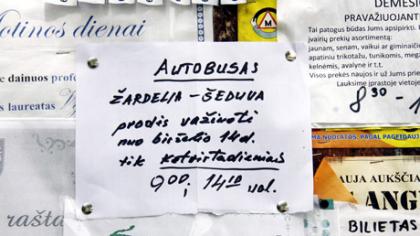 otinos dienai
e dainuos profes
s laureatas
rašta
AUTOBUSAS
ŽARDELIA – ŠEDUVA
pradis važinoti
nuo birželio 14 d.
tik ketvirtadieniais
9 00 ; 14 10 val.
DĖMESIO
PRAVAŽIUOJANT
Tai patogus būdas Jums apsipirkti.
įvairių prekių asortimentą:
jaunam, senam, vaikui ar giminaičiui
apatinių trikotažu, tunikomis, megztu
kelnėmis, avalyne ir t.t.
Visos prekės naujos ir už Jums priei
Lauksime įprastoje vietoje
8 30 - 1
MA NUOLATOS, PAGAL PAGEIDAUJ
AUJA AUKŠČIA
LANG
BILIETAS